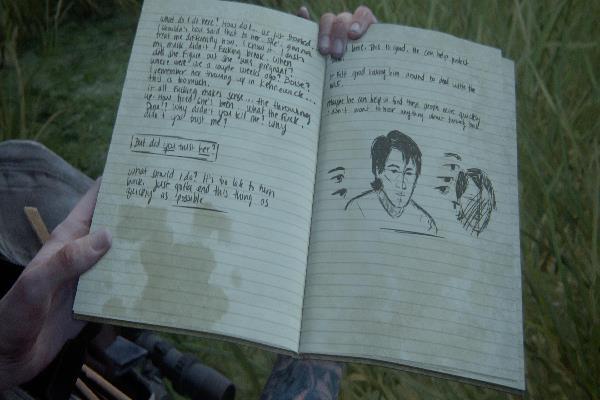 What do I do here? How did... we just
I wouldn't have said that to me. She's gonna
treat me differently now. I know it. I wish
my mask didn't fucking break. When
did she figure out she was pregnant?
Where were we a couple weeks ago? Boise?
I remember her throwing up in Kennewick...
this is too much.
it all fucking makes sense... the throwing
up. How tired she's been... What the fuck,
Dina? Why didn't you tell me? Why
didn't you trust me?
But did you trust her?
What should I do? It's too late to turn
back. Just gotta end this thing as
quickly as possible.
here. This is good. He can help protect
I felt good having him around to deal with the
Maybe he can help us find these people more quickly
I don't want to hear anything about turning back